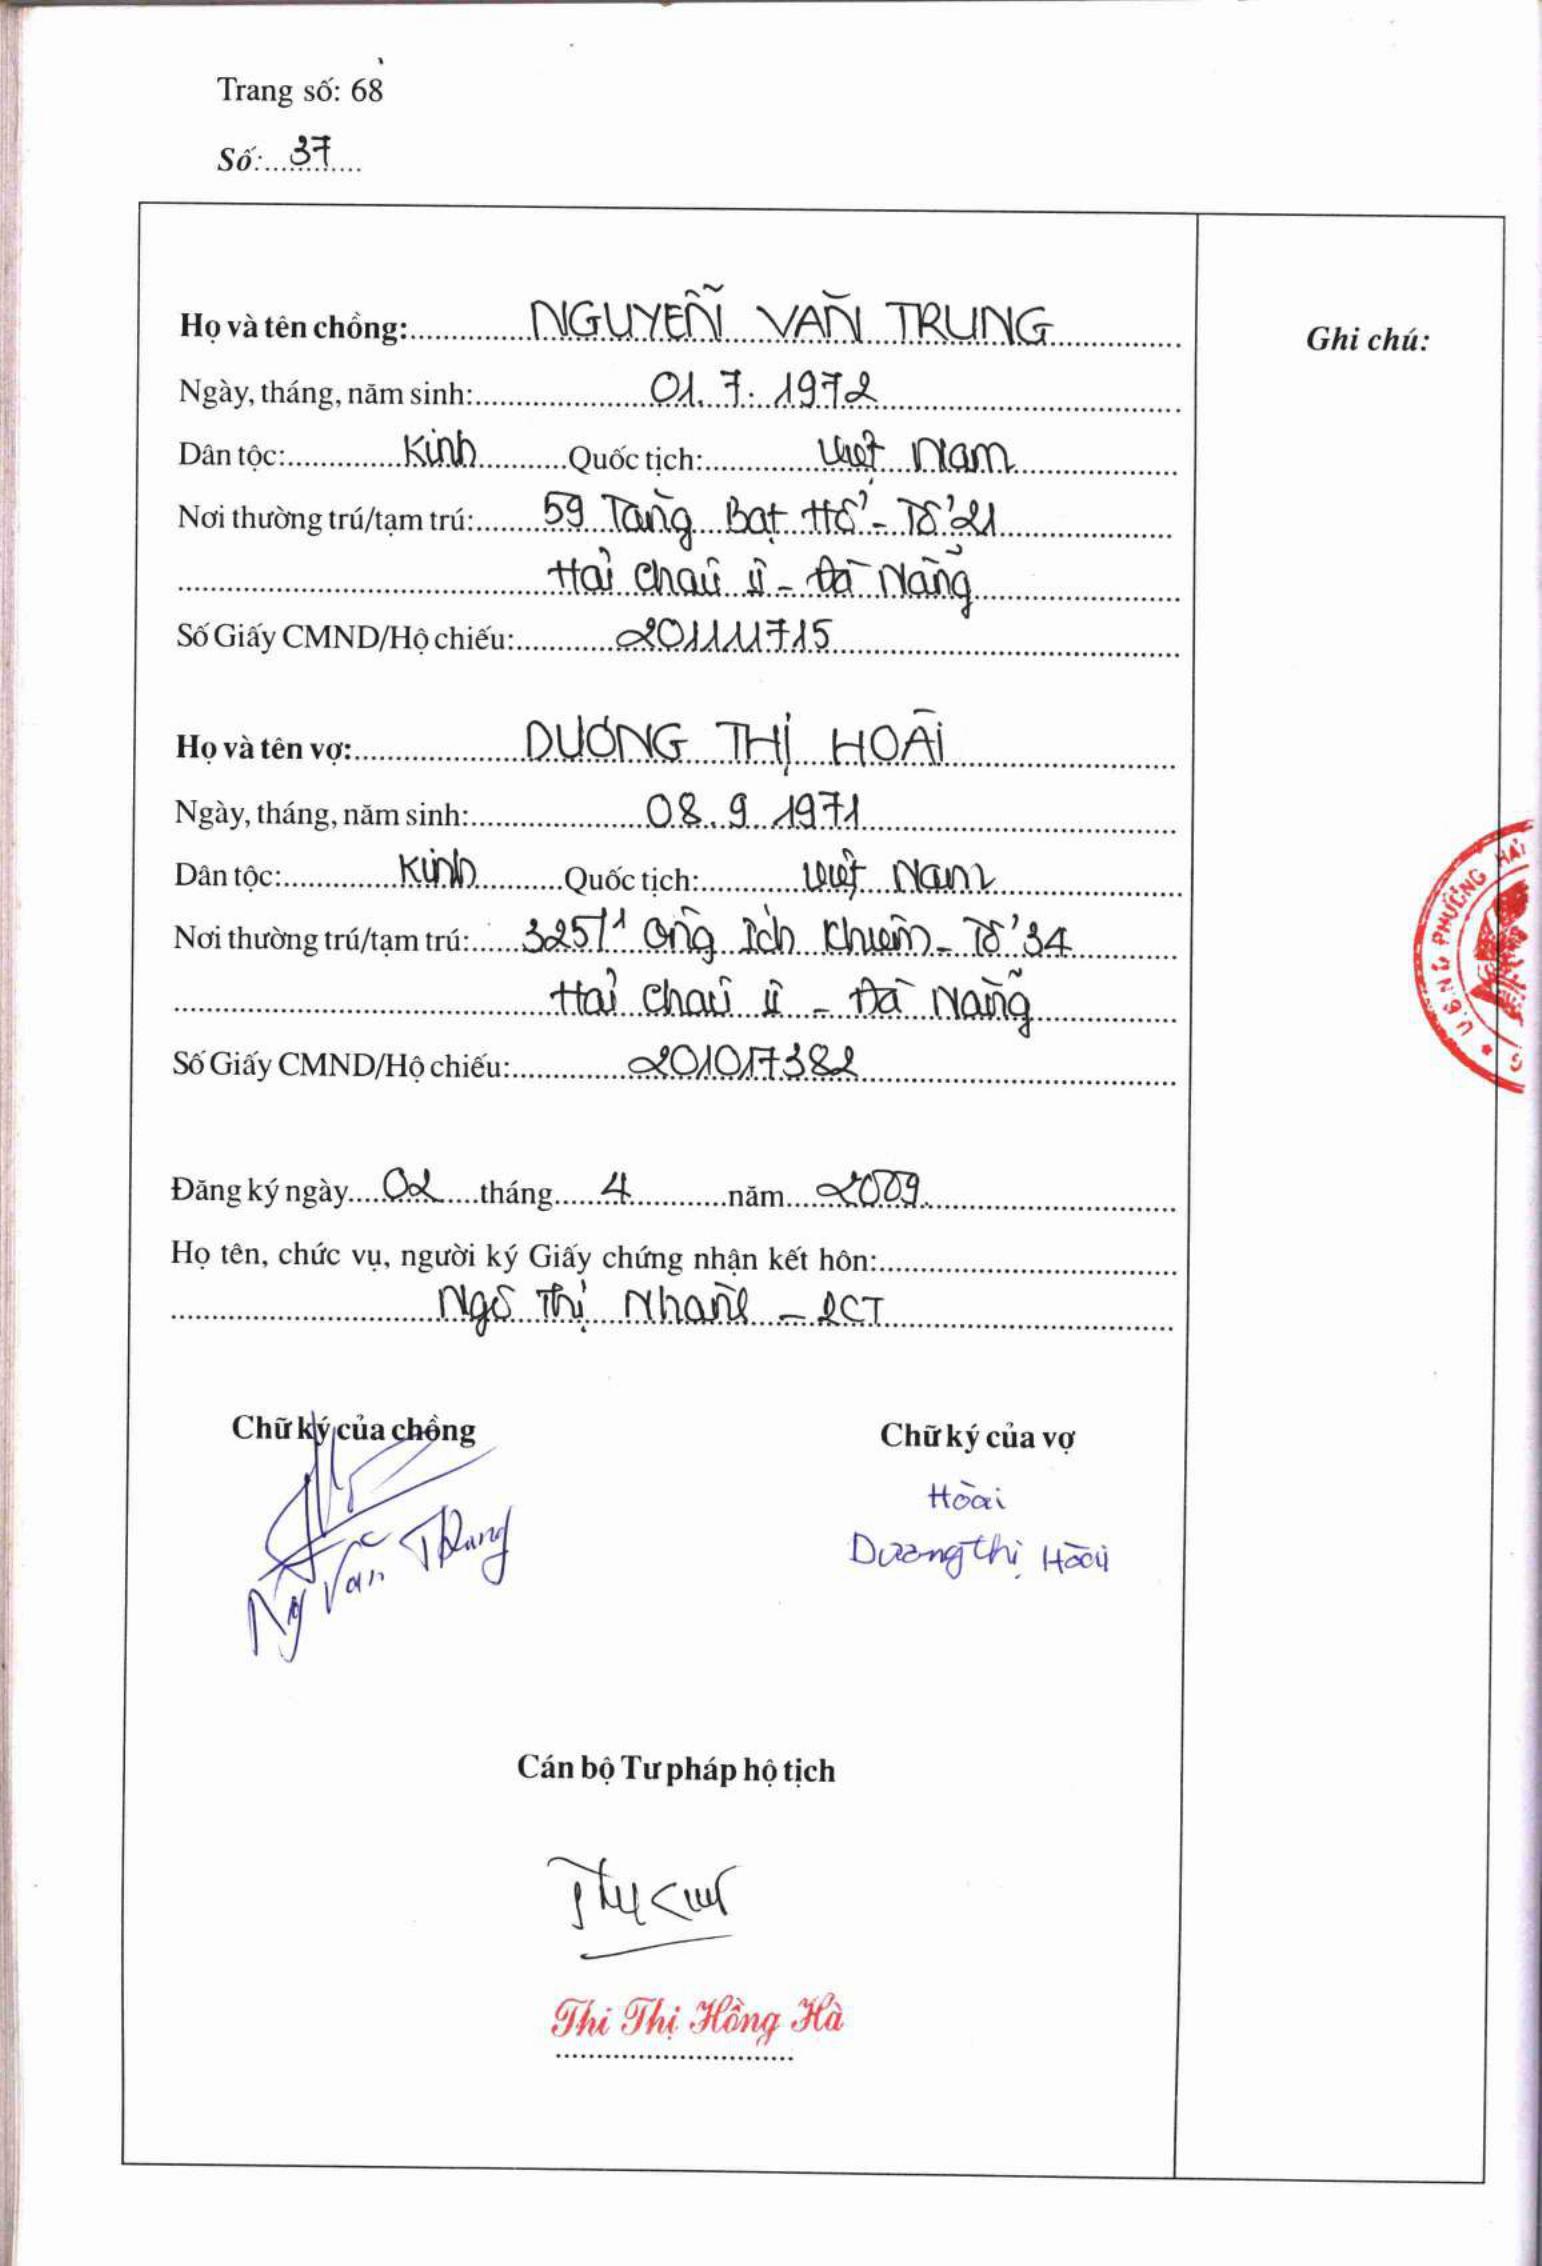 Trang số: 68
Số: 37
Họ và tên chồng: NGUYỄN VĂN TRUNG
Ghi chú:
Ngày, tháng, năm sinh: 01.7.1972
Dân tộc: Kinh Quốc tịch: Việt Nam
Nơi thường trú/tạm trú: 59 Tăng Bạt Hổ - Tổ 21
Hải Châu II - Đà Nẵng
Số Giấy CMND/Hộ chiếu: 201111715
Họ và tên vợ: DƯƠNG THỊ HOÀI
Ngày, tháng, năm sinh: 08.9.1971
Dân tộc: Kinh Quốc tịch: Việt Nam
Nơi thường trú/tạm trú: 325/1 Ông Ích Khiêm - Tổ 34
Hải Châu II - Đà Nẵng
Số Giấy CMND/Hộ chiếu: 201017382
Đăng ký ngày 02 tháng 4 năm 2009.
Họ tên, chức vụ, người ký Giấy chứng nhận kết hôn:
Ngô Thị Nhanh - PCT
Chữ ký của chồng
Chữ ký của vợ
Hoài
Ng Văn Trung
Dương Thị Hoài
Cán bộ Tư pháp hộ tịch
Thi Thị Hồng Hà
U.B.N.D PHƯỜNG HẢI